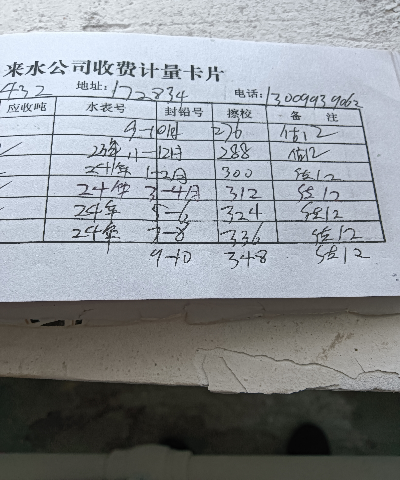 来水公司收费计量卡片
432 地址:172834 电话:13009939062
应收吨 水表号 封铅号 擦校 备 注
9-10月 276 估12
23年 11-12月 288 估12
24年 1-2月 300 估12
24年 3-4月 312 估12
24年 5-6 324 估12
24年 7-8 336 估12
9-10 348 估12